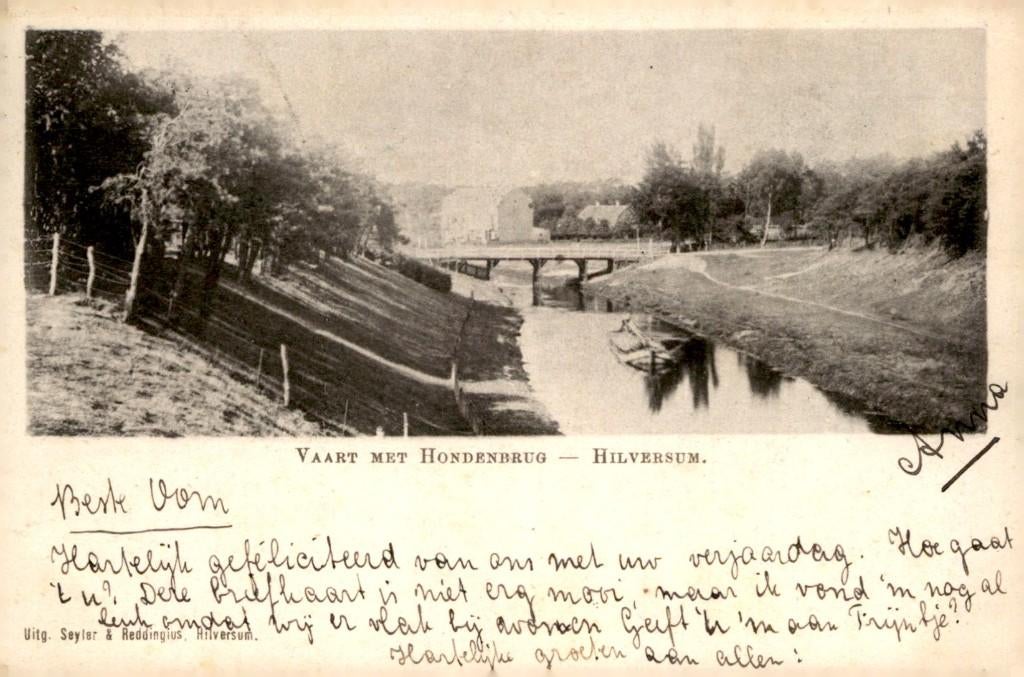 VAART MET HONDENBRUG — HILVERSUM.
Anna
Beste Oom
Hartelijk gefeliciteerd van ons met uw verjaardag. Hoe gaat
't u? Deze briefkaart is niet erg mooi, maar ik vond 'm nog al
leuk omdat wij er vlak bij wonen Geeft 'u 'm aan Trijntje?
Uitg. Seyler & Reddingius, Hilversum.
Hartelijke groeten aan allen: